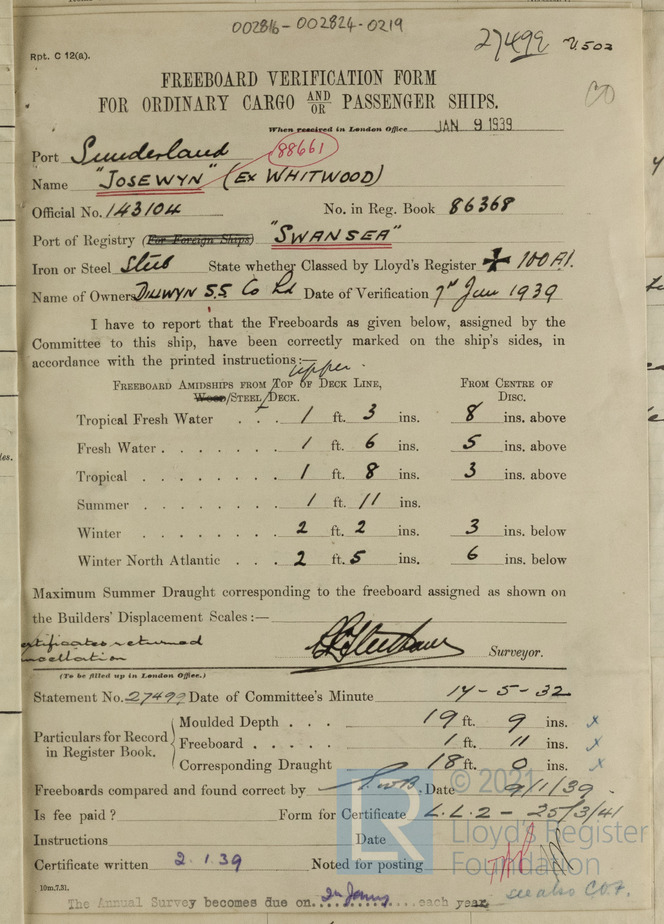 002816-002824-0219
27499 V.502
Rpt. C 12(a).
CO
FREEBOARD VERIFICATION FORM
FOR ORDINARY CARGO AND/OR PASSENGER SHIPS.
When received in London Office JAN 9 1939
Port Sunderland 88661
Name "JOSEWYN" (EX WHITWOOD)
Official No. 143104 No. in Reg. Book 86368
Port of Registry (For Foreign Ships) "SWANSEA"
Iron or Steel Steel State whether Classed by Lloyd's Register ✠ 100 A1.
Name of Owners DILLWYN S.S. Co Ld Date of Verification 7th Jan 1939
I have to report that the Freeboards as given below, assigned by the
Committee to this ship, have been correctly marked on the ship's sides, in
accordance with the printed instructions:—
upper
FREEBOARD AMIDSHIPS FROM TOP OF DECK LINE, FROM CENTRE OF
WOOD/STEEL/DECK. DISC.
Tropical Fresh Water . . . 1 ft. 3 ins. 8 ins. above
Fresh Water . . . . . . . 1 ft. 6 ins. 5 ins. above
Tropical . . . . . . . . 1 ft. 8 ins. 3 ins. above
Summer . . . . . . . . 1 ft. 11 ins.
Winter . . . . . . . . 2 ft. 2 ins. 3 ins. below
Winter North Atlantic . . . 2 ft. 5 ins. 6 ins. below
Maximum Summer Draught corresponding to the freeboard assigned as shown on
the Builders' Displacement Scales :—
returned
Surveyor.
(To be filled up in London Office.)
Statement No. 27499 Date of Committee's Minute 14-5-32
Particulars for Record in Register Book.
Moulded Depth . . . 19 ft. 9 ins. x
Freeboard . . . . . 1 ft. 11 ins. x
Corresponding Draught 18 ft. 0 ins. x
Freeboards compared and found correct by Date 9/1/39
Is fee paid ? Form for Certificate L.L.2 - 25/3/41
Instructions Date
Certificate written 2.1.39 Noted for posting
10m.7.31.
see also CO7.
The Annual Survey becomes due on each year.
LR
© 2021
Lloyd's Register
Foundation